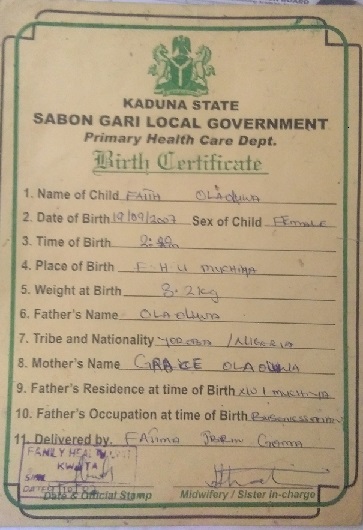 KADUNA STATE
SABON GARI LOCAL GOVERNMENT
Primary Health Care Dept.
Birth Certificate
1. Name of Child FAITH OLAOLUWA
2. Date of Birth 19/09/2007 Sex of Child FEMALE
3. Time of Birth
4. Place of Birth F.H.U MUCHIYA
5. Weight at Birth 3.2kg
6. Father's Name OLAOLUWA
7. Tribe and Nationality YOROBA /NIGERIA
8. Mother's Name GRACE OLAOLUWA
9. Father's Residence at time of Birth MUCHIYA
10. Father's Occupation at time of Birth
11. Delivered by. FATIMA
FAMILY HEALTH UNIT
KWATA
SIGN
DATE
Date & Official Stamp Midwifery / Sister in-charge